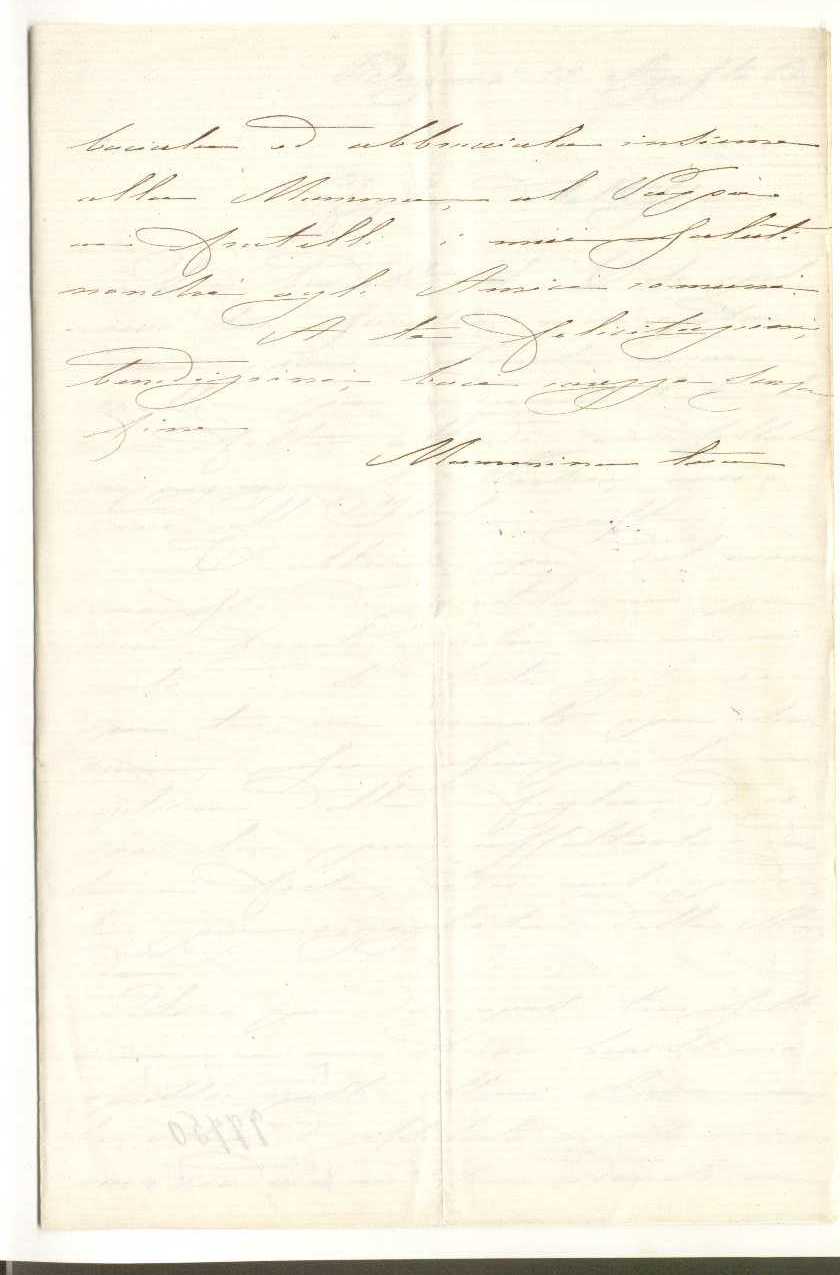 baciala ed abbracciala insieme
alla Mamma, al Papà
ai fratelli i miei saluti
nonchè agli Amici comuni.
A te felicitazioni,
benedizioni, baci
fine
Mammina tua